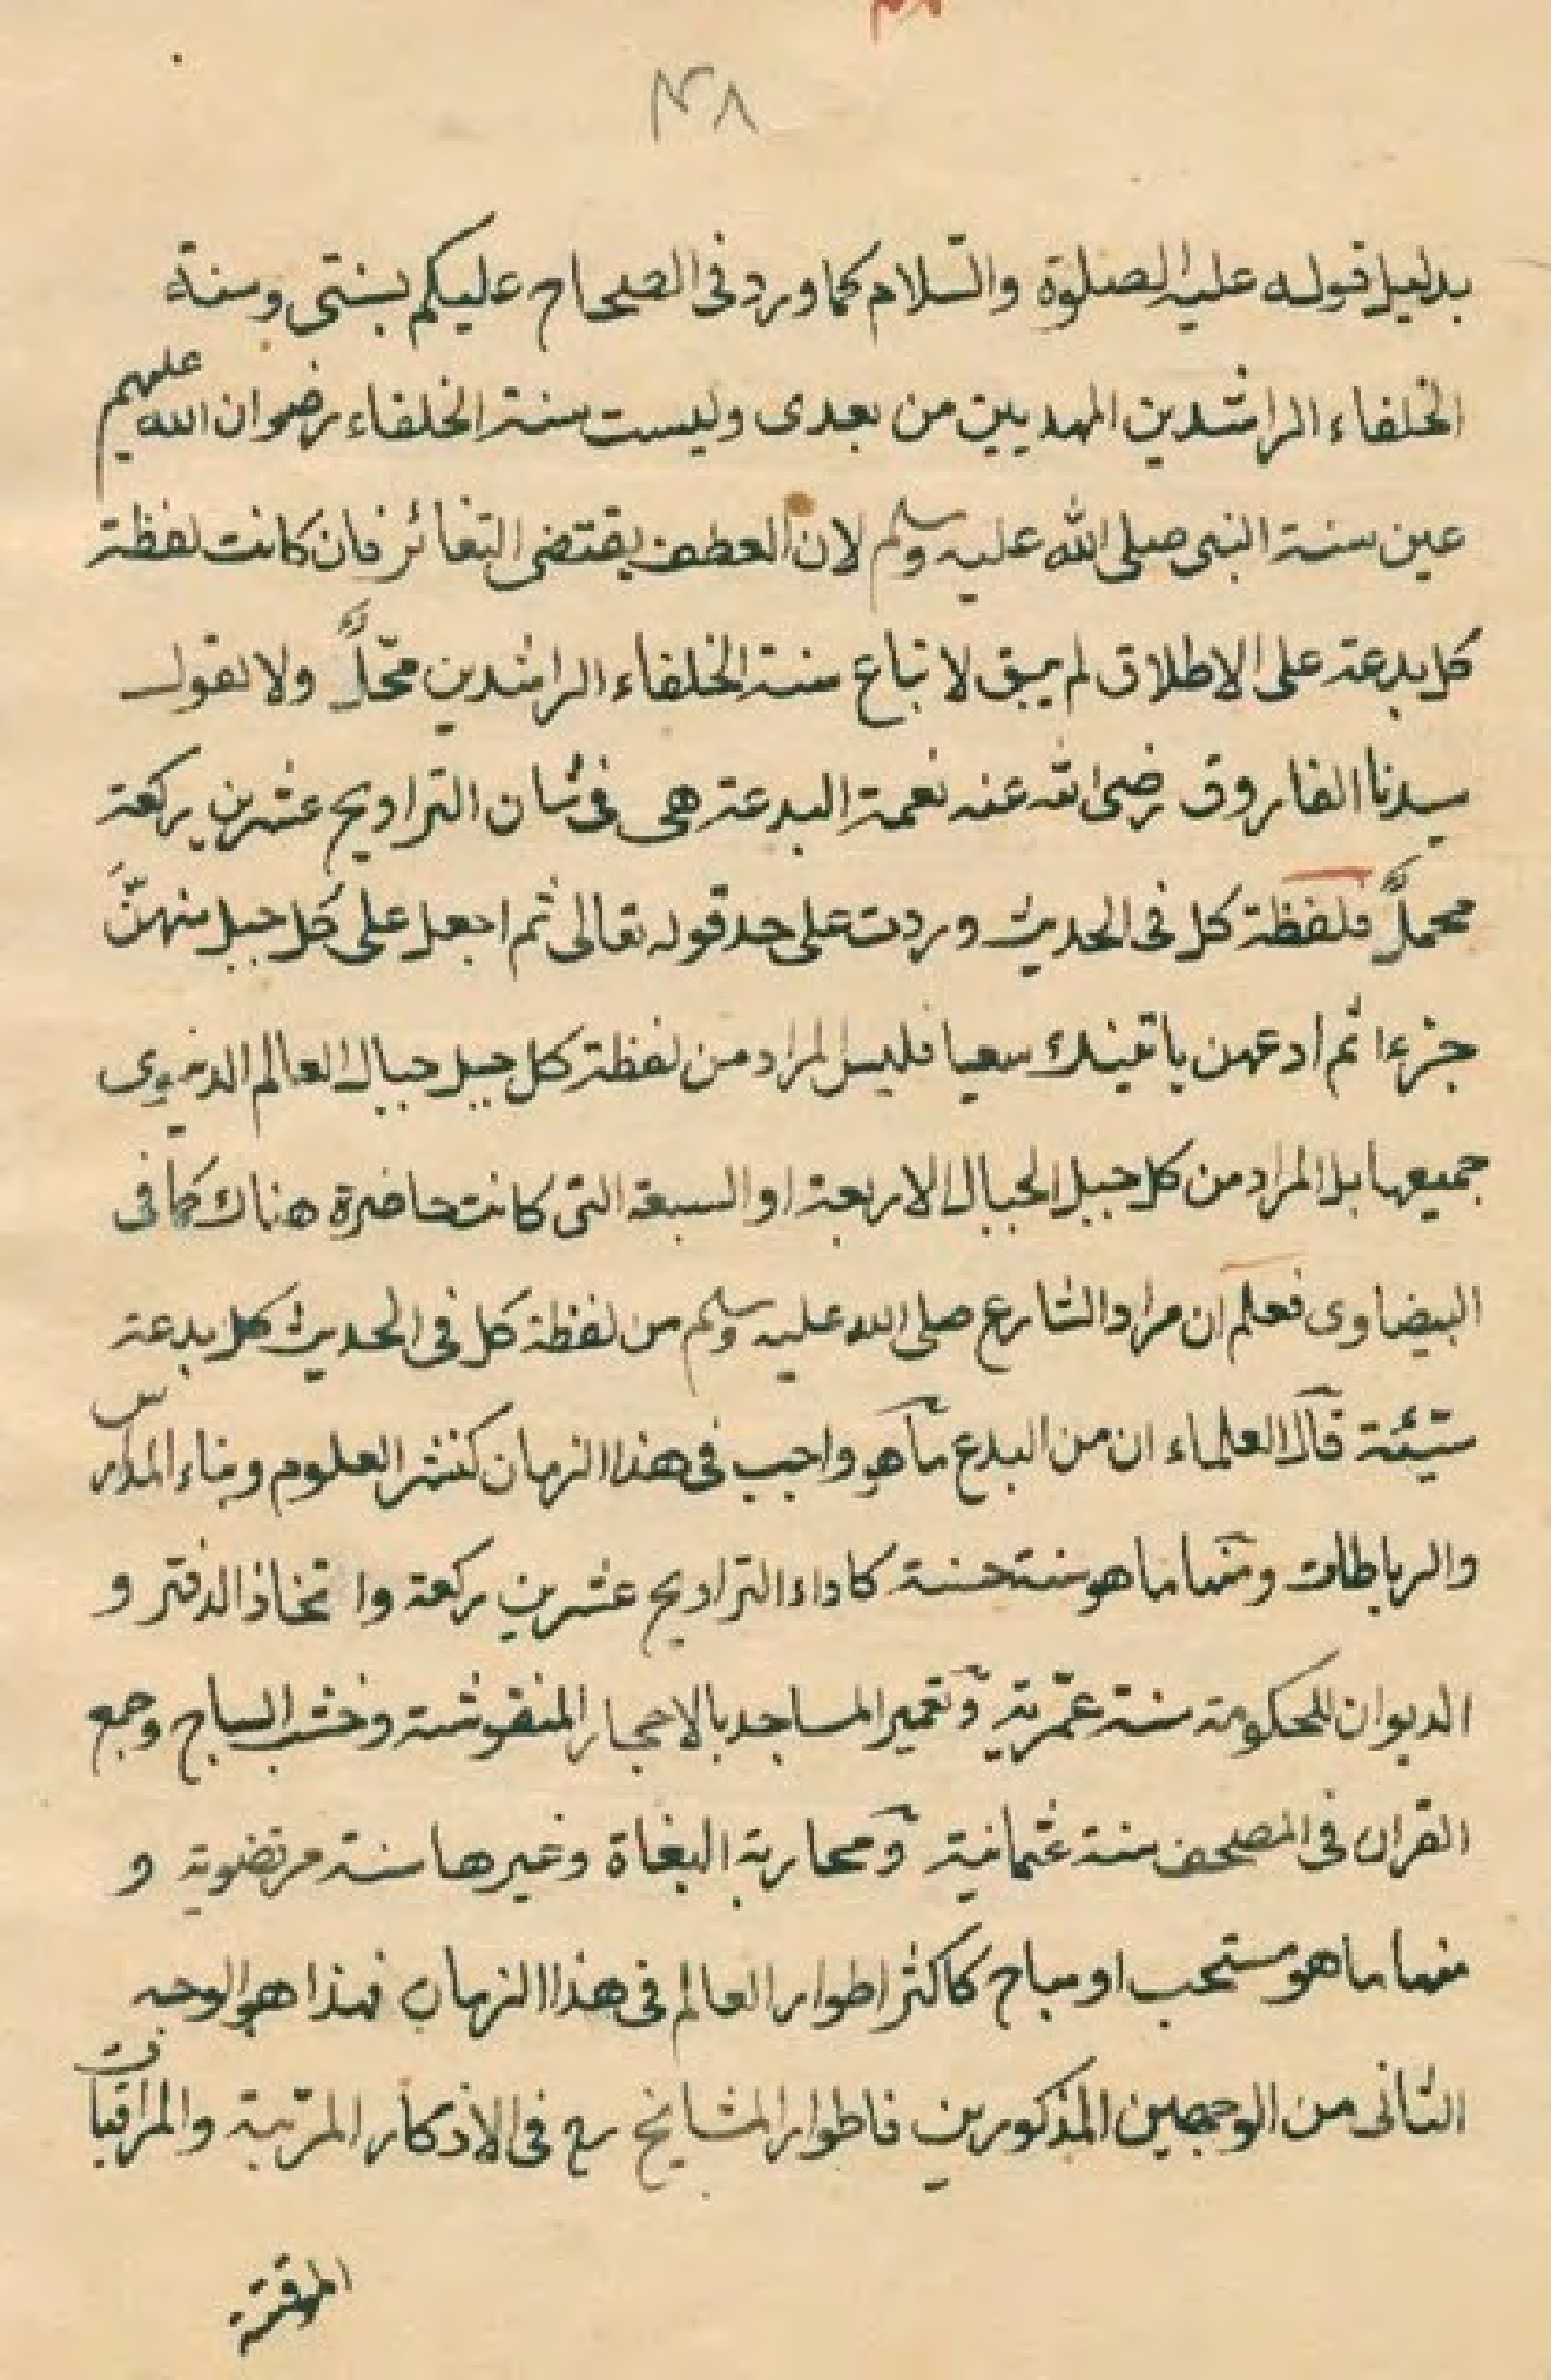 ٣٨
بدليل قوله عليه الصلوة والسّلام كما ورد فى الصحاح عليكم بسنتى وسنة
الخلفاء الراشدين المهديين من بعدى وليست سنة الخلفاء رضوان الله عليهم
عين سنة النبى صلى الله عليه وسلم لان العطف يقتضى التغائر فان كانت لفظة
كل بدعة على الاطلاق لم يبق لاتباع سنة الخلفاء الراشدين محّلاً ولا لقول
سيدنا الفاروق رضى الله عنه نعمة البدعة هى فى شان التراويح عشرين ركعة
محملاً فلفظة كل فى الحديث وردت على حد قوله تعالى ثم اجعل على كل جبل منهنَّ
جزءا ثم ادعهن ياتينك سعيا فليس المراد من لفظة كل جبل جبال العالم الدنيوى
جميعها بل المراد من كل جبل الجبال الاربعة او السبعة التى كانت حاضرة هناك كما فى
البيضاوى فعلم ان مراد الشارع صلى الله عليه وسلم من لفظة كل فى الحديث كل بدعة
سيّئة قال العلماء ان من البدع ما هو واجب فى هذا الزمان كنشر العلوم وبناء المدارس
والرباطات ومنها ما هو سنة حسنة كاداء التراويح عشرين ركعة واتخاذ الدفتر و
الديوان للحكومة سنة عمّرية وتعمير المساجد بالاحجار المنقوشة وخشب الساج وجمع
القران فى المصحف سنة عثمانية ومحاربة البغاة وغيرها سنة مرتضوية و
منها ما هو مستحب او مباح كاكثر اطوار العالم فى هذا الزمان فهذا هو الوجه
الثانى من الوجهين المذكورين فاطوار المشايخ رح فى الاذكار المرتبة والمراقبات